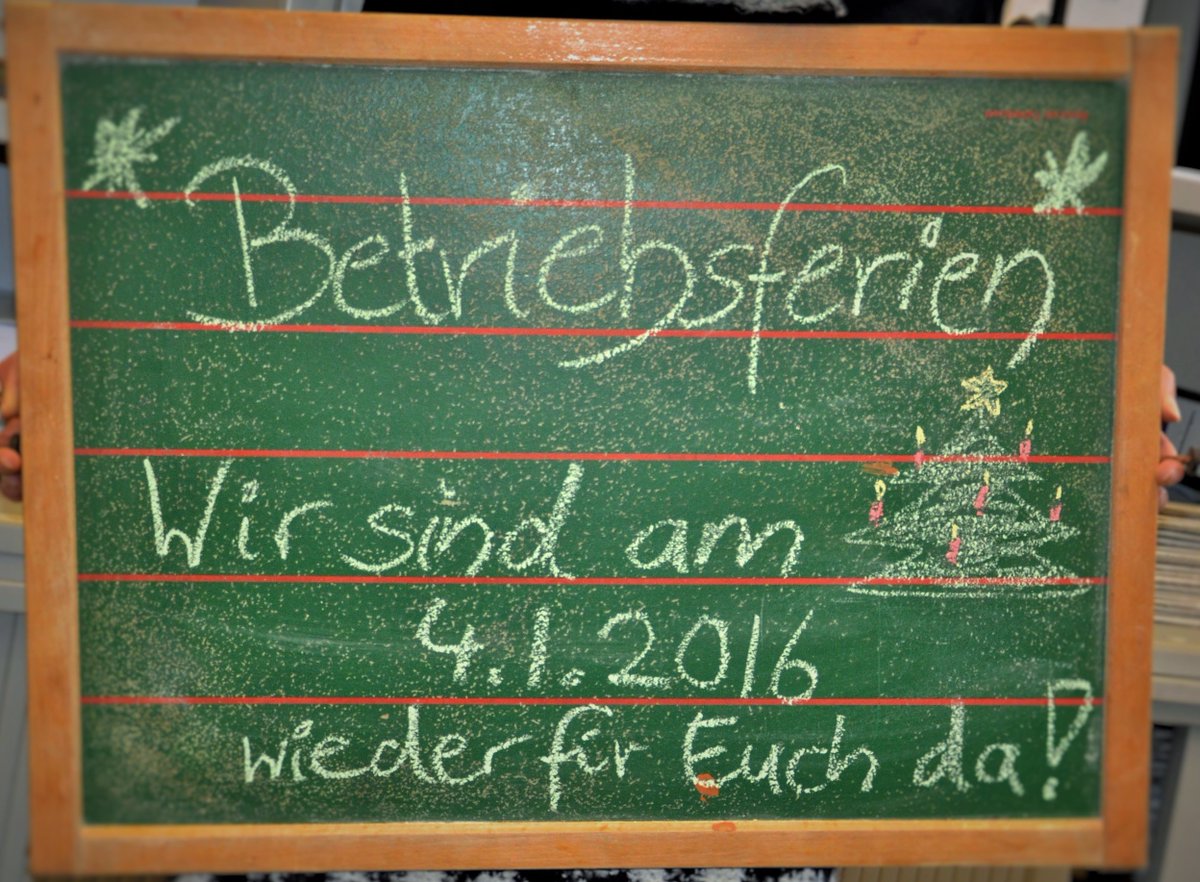 Betriebsferien
Wir sind am
4.1.2016
wieder für Euch da!